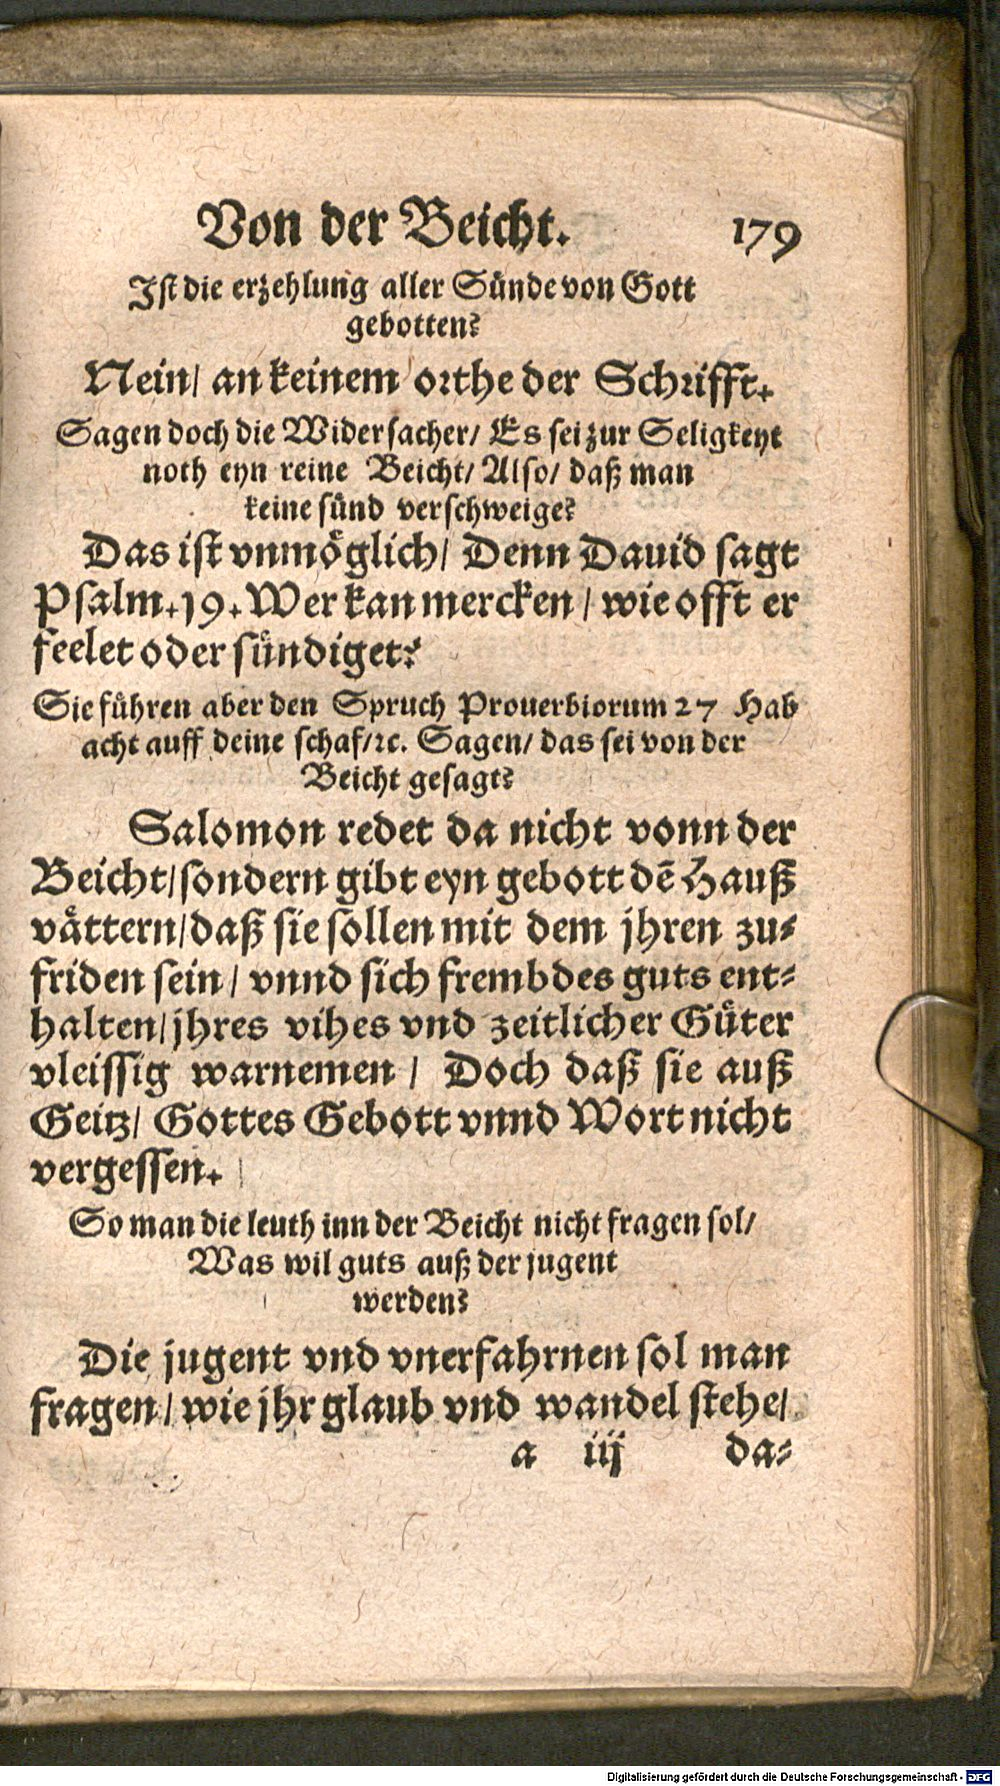 Von der Beicht. 179
Ist die erzehlung aller Sünde von Gott
gebotten?
Nein/ an keinem orthe der Schrifft.
Sagen doch die Widersacher/ Es sei zur Seligkeyt
noth eyn reine Beicht/ Also/ daß man
keine sünd verschweige?
Das ist vnmöglich/ Denn Dauid sagt
Psalm. 19. Wer kan mercken / wie offt er
feelet oder sündiget?
Sie führen aber den Spruch Prouerbiorum 27 Hab
acht auff deine schaf/ꝛc. Sagen/ das sei von der
Beicht gesagt?
Salomon redet da nicht vonn der
Beicht/sondern gibt eyn gebott dē Hauß
vättern/daß sie sollen mit dem jhren zu⸗
friden sein / vnnd sich frembdes guts ent⸗
halten/jhres vihes vnd zeitlicher Güter
vleissig warnemen / Doch daß sie auß
Geitz/ Gottes Gebott vnnd Wort nicht
vergessen.
So man die leuth inn der Beicht nicht fragen sol/
Was wil guts auß der jugent
werden?
Die jugent vnd vnerfahrnen sol man
fragen/ wie jhr glaub vnd wandel stehe/
a iij da⸗
Digitalisierung gefördert durch die Deutsche Forschungsgemeinschaft - DFG